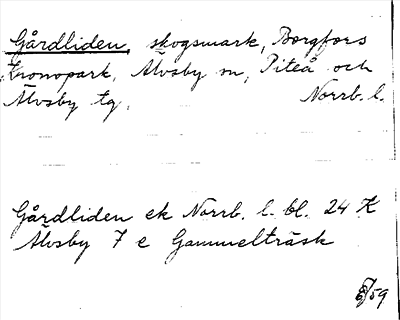 Gårdliden, skogsmark, Borgfors
Kronopark, Älvsby sn, Piteå och
Älvsby tg, Norrb. l.
Gårdliden ek Norrb. l. bl. 24 K
Älvsby 7 e Gammelträsk
/59